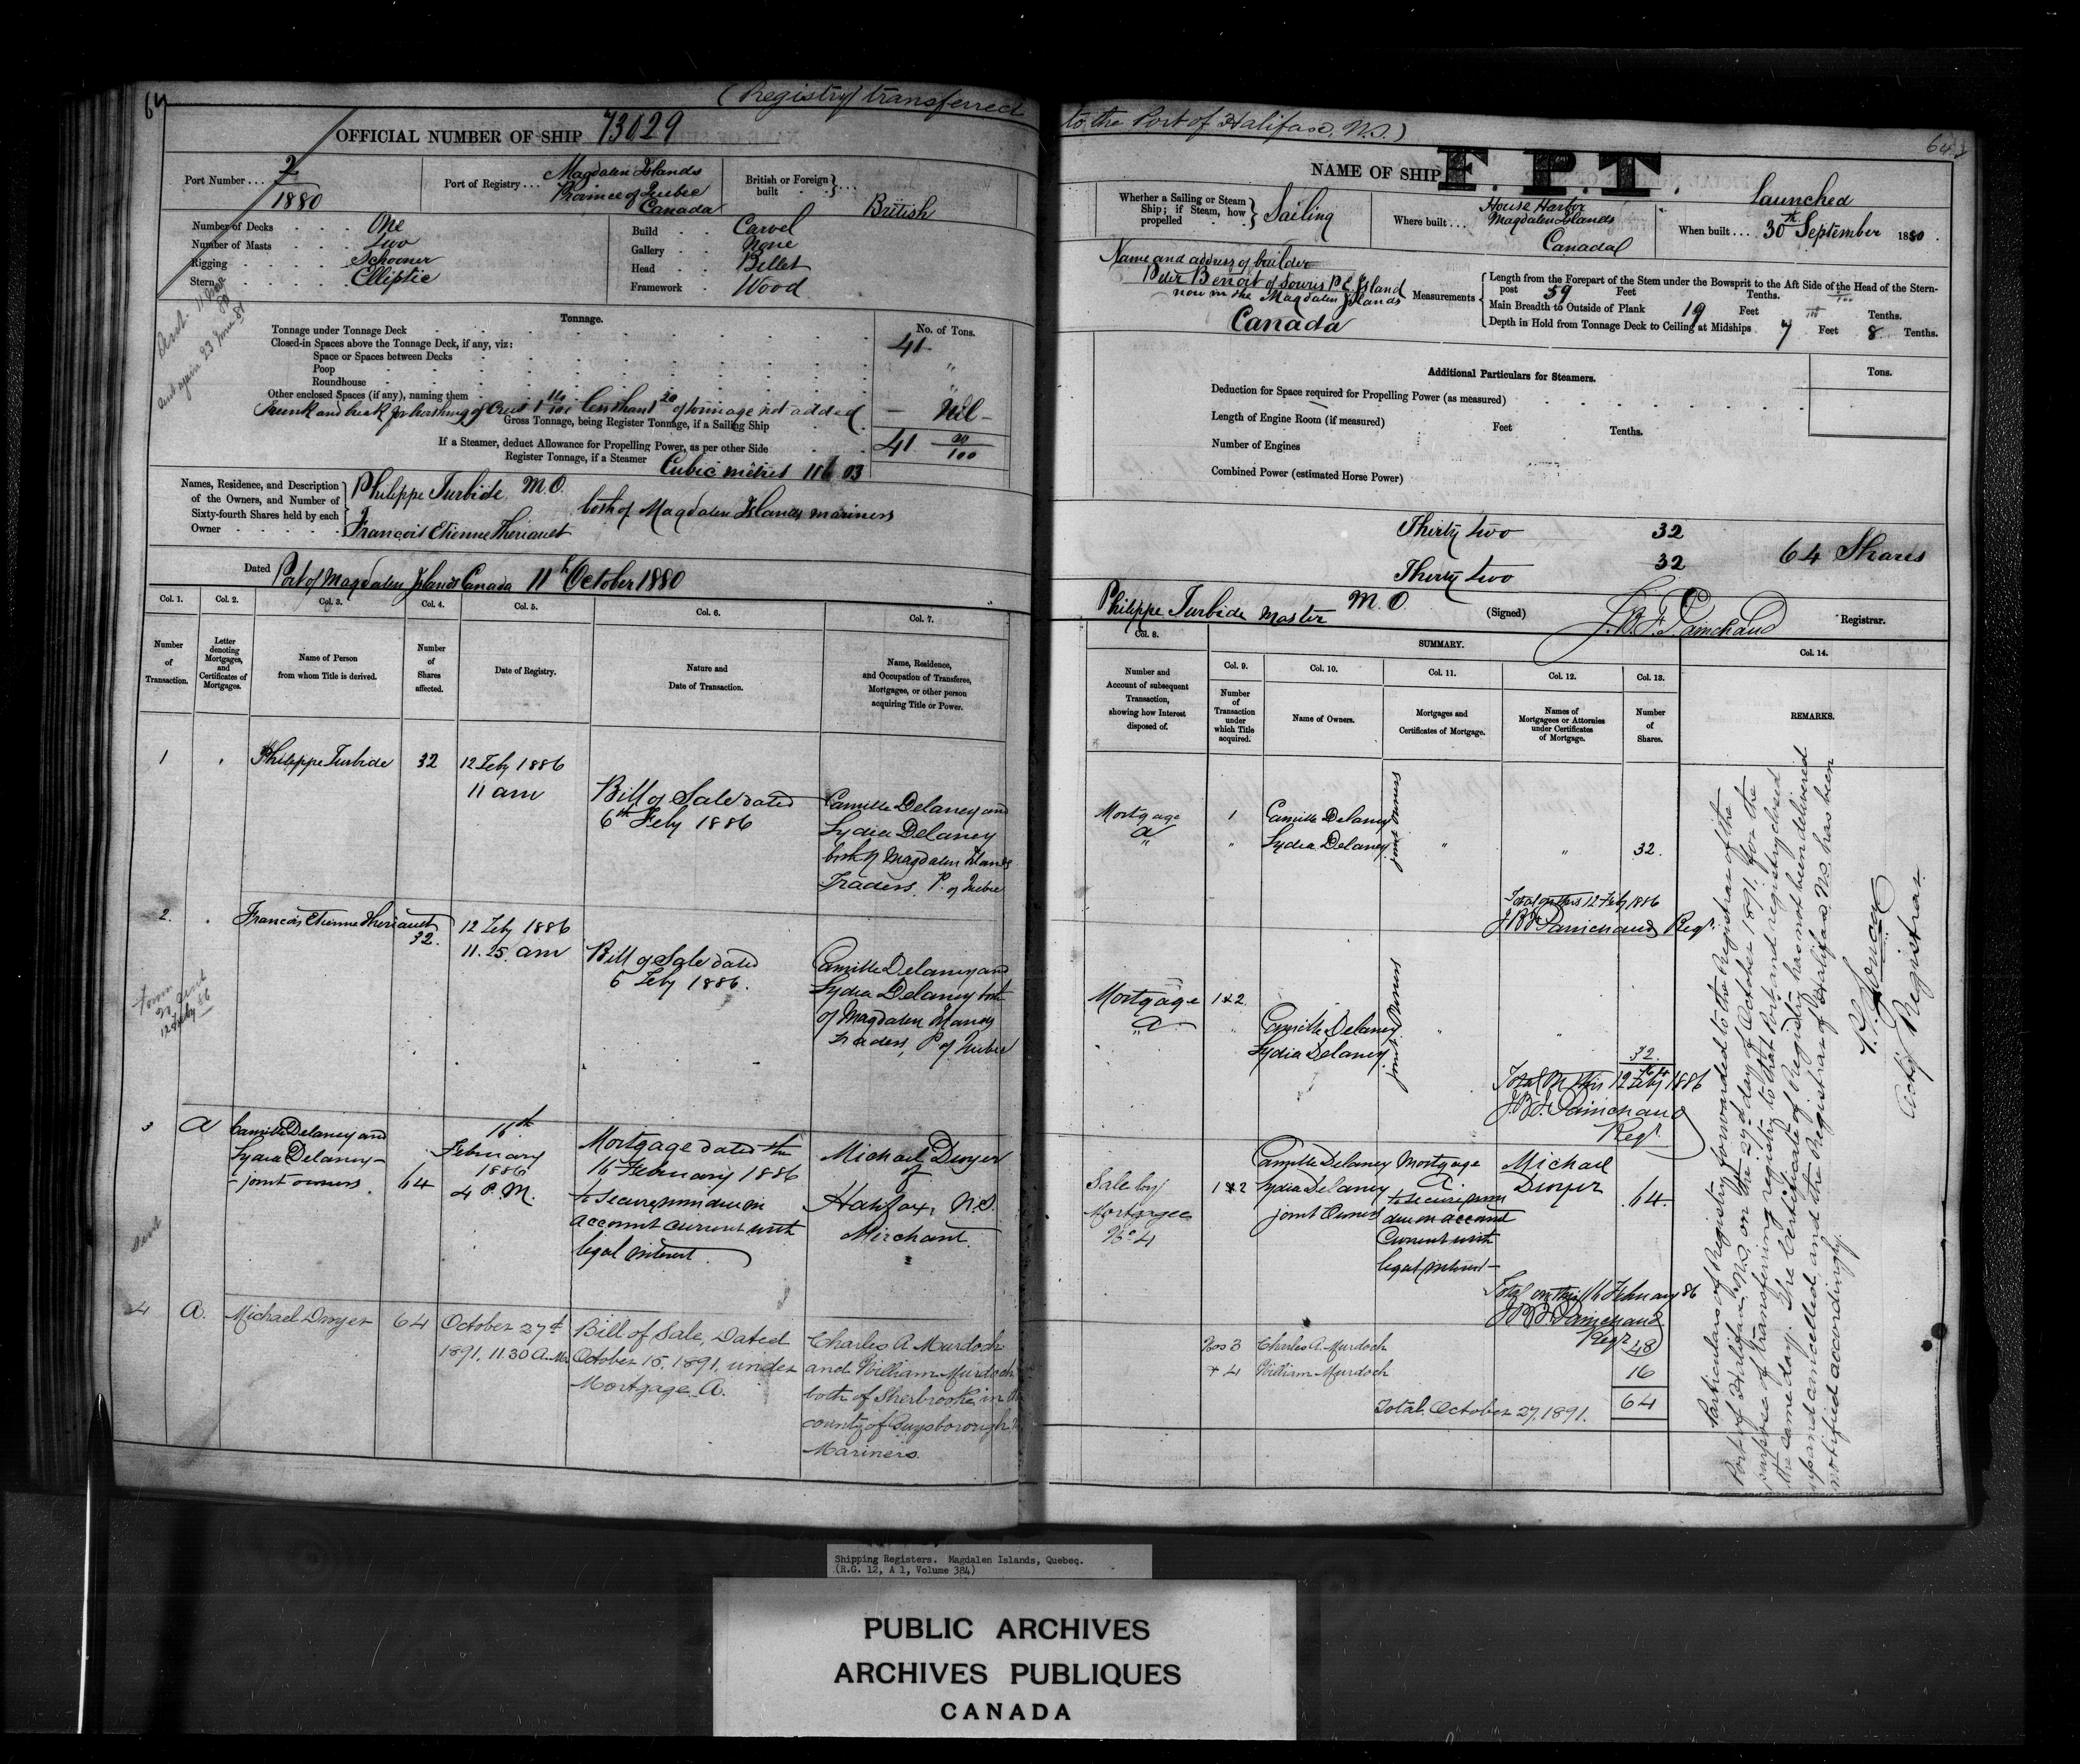 64
(Registry transferred to the Port of Halifax, N.S.)
OFFICIAL NUMBER OF SHIP 73029
Port Number . . . 2/1880
Port of Registry . . . Magdalen Islands
Province of Quebec
Canada
British or Foreign built British
Number of Decks One
Number of Masts Two
Rigging Schooner
Stern Elliptic
Build Carvel
Gallery None
Head Billet
Framework Wood
Tonnage. No. of Tons.
Tonnage under Tonnage Deck 41
Closed-in Spaces above the Tonnage Deck, if any, viz:
Space or Spaces between Decks "
Poop
Roundhouse "
Other enclosed Spaces (if any), naming them
less than of tonnage not added — Nil —
Gross Tonnage, being Register Tonnage, if a Sailing Ship
If a Steamer, deduct Allowance for Propelling Power, as per other Side 41 /100
Register Tonnage, if a Steamer
Cubic metres 116 03
Names, Residence, and Description
of the Owners, and Number of
Sixty-fourth Shares held by each
Owner
Philippe Turbide, M.O.
both of Magdalen Islands mariners
François Etienne Theriault
Dated Port of Magdalen Islands Canada 11th October 1880
Col. 1. Col. 2. Col. 3. Col. 4. Col. 5. Col. 6. Col. 7.
Number of Transaction.
Letter denoting Mortgages, and Certificates of Mortgages.
Name of Person from whom Title is derived.
Number of Shares affected.
Date of Registry.
Nature and Date of Transaction.
Name, Residence, and Occupation of Transferee, Mortgagee, or other person acquiring Title or Power.
1 Philippe Turbide 32 12 Feby 1886
11 am
Bill of Sale dated
6th Feby 1886
Camille Delaney and
Lydia Delaney
both of Magdalen Islands
Traders, P. of Quebec
2. Francois Etienne Theriault
32.
12 Feby 1886
11.25 am
Bill of Sale dated
6 Feby 1886.
Camille Delaney and
Lydia Delaney both
of Magdalen Islands
traders, P of Quebec
3 A Camille Delaney and
Lydia Delaney
- joint owners. 64
16th
February
1886
4 P.M.
Mortgage dated the
16 February 1886
to secure sum due on
account current with
legal interest
Michael Dwyer
of
Halifax, N.S.
Merchant.
sent
4 A. Michael Dwyer 64 October 27th
1891. 11.30 A.M.
Bill of Sale, Dated
October 15, 1891, under
Mortgage A.
Charles A. Murdoch
and William Murdoch
both of Sherbrooke in the
county of Guysborough
Mariners.
NAME OF SHIP F.P.T.
Whether a Sailing or Steam Ship; if Steam, how propelled Sailing
Where built . . . House Harbor
Magdalen Islands
Canada
Launched
When built . . . 30th September 1880.
Name and address of builder
Peter Benoit of Souris P.E. Island
now in the Magdalen Islands
Canada
Measurements
Length from the Forepart of the Stem under the Bowsprit to the Aft Side of the Head of the Stern-
post 59 Feet Tenths.
Main Breadth to Outside of Plank 19 Feet Tenths.
Depth in Hold from Tonnage Deck to Ceiling at Midships 7 Feet 8 Tenths.
Additional Particulars for Steamers. Tons.
Deduction for Space required for Propelling Power (as measured)
Length of Engine Room (if measured) Feet Tenths.
Number of Engines
Combined Power (estimated Horse Power)
Thirty two 32
64 Shares
Thirty two 32
Philippe Turbide Master M.O. (Signed) J.B.F. Painchaud Registrar.
Col. 8. SUMMARY. Col. 14.
Col. 9. Col. 10. Col. 11. Col. 12. Col. 13.
Number and Account of subsequent Transaction, showing how Interest disposed of.
Number of Transaction under which Title acquired.
Name of Owners.
Mortgages and Certificates of Mortgage.
Names of Mortgagees or Attornies under Certificates of Mortgage.
Number of Shares.
REMARKS.
Mortgage 1 Camille Delaney
A " Lydia Delaney " " 32.
joint owners
Total on this 12 Feby 1886
J.B.F. Painchaud Regr.
Mortgage 1 & 2
A Camille Delaney
Lydia Delaney
joint owners
32.
Total on this 12 Feby 1886
J.B.F. Painchaud
Regr.
Sale by
Mortgagee
No 4
1 & 2
Camille Delaney
Lydia Delaney
joint Owners
Mortgage
A
to secure sum
due on account
current with
legal interest
Michael
Dwyer
64.
Total on this 16 February 86
J.B.F. Painchaud
Regr.
Nos 3 Charles A. Murdoch 48
& 4 William Murdoch 16
Total October 27, 1891. 64
Particulars of Registry forwarded to the Registrar of the
Port of Halifax, N.S. on the 27th day of October 1891, for the
purpose of transferring registry to that Port and registry closed
the same day. The Certificate of Registry has not been delivered
up and cancelled, and the Registrar of Halifax, N.S. has been
notified accordingly.
Actg Registrar.
Shipping Registers. Magdalen Islands, Quebec.
(R.G. 12, A 1, Volume 384)
PUBLIC ARCHIVES
ARCHIVES PUBLIQUES
CANADA